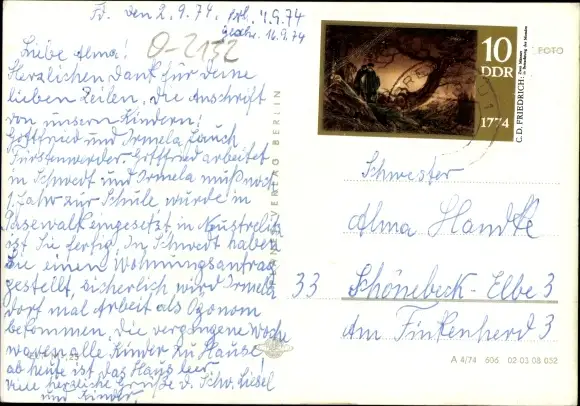 Fd. den 2.9.74. erh. 4.9.74
16.9.74
O-2152
Liebe Alma!
Herzlichen Dank für deine
lieben Zeilen, die Anschrift
von unsern Kindern:
Gottfried und Irmela Lauch
Fürstenwerder. Gottfried arbeitet
in Schwedt und Irmela muß noch
1 Jahr zur Schule wurde in
Pasewalk eingesetzt in Neustrelitz
ist Sie fertig, In Schwedt haben
Sie einen Wohnungsantrag
gestellt, sicherlich wird Irmela
dort mal Arbeit als Ozonom
bekommen, die vergangene Woche
waren alle Kinder zu Hause,
ab heute ist das Haus leer
viele herzliche Grüße d. Schw. Liesel
und Kinder.
VERLAG BERLIN
10
DDR
1774
C.D. FRIEDRICH:
Zwei Männer
in Betrachtung des Mondes
FOTO
Schwester
Alma Handke
33 Schönebeck-Elbe 3
Am Finkenherd 3
A 4/74 696 02 03 08 052